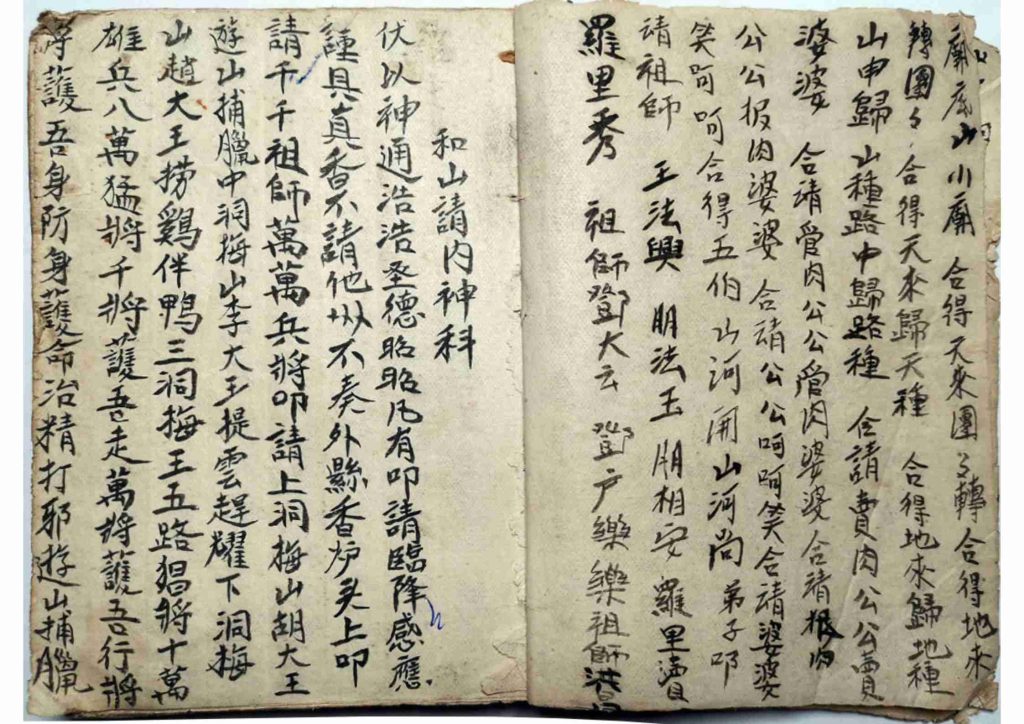 廟底山小廟　合得天來團々轉合得地來
轉團々合得天來歸天種　合得地來歸地種
山申歸山種路中歸路種　合請賣肉公公賣
婆婆　合請管肉公公管肉婆婆合請報肉
公公报肉婆婆　合請公公呵呵笑合請婆婆
笑呵呵合得五伯山河開山河尚　弟子叩
請祖師　王法興　朋法玉　朋相安　羅里賣
羅里秀　祖師鄧大云　鄧户樂樂祖師
和山請內神科
伏以神通浩浩圣德昭昭凡有叩請臨降感應
謹具真香不請他州不奏外縣香炉头上叩
請千千祖師萬萬兵將叩請上洞梅山胡大王
遊山捕臘中洞梅山李大王提雲趕耀下洞梅
山趙大王捞鷄伴鴨三洞梅王五路猖將十萬
雄兵八萬猛將千將護吾走萬將護吾行將
將護吾身防身護命冶精打邪遊山捕臘